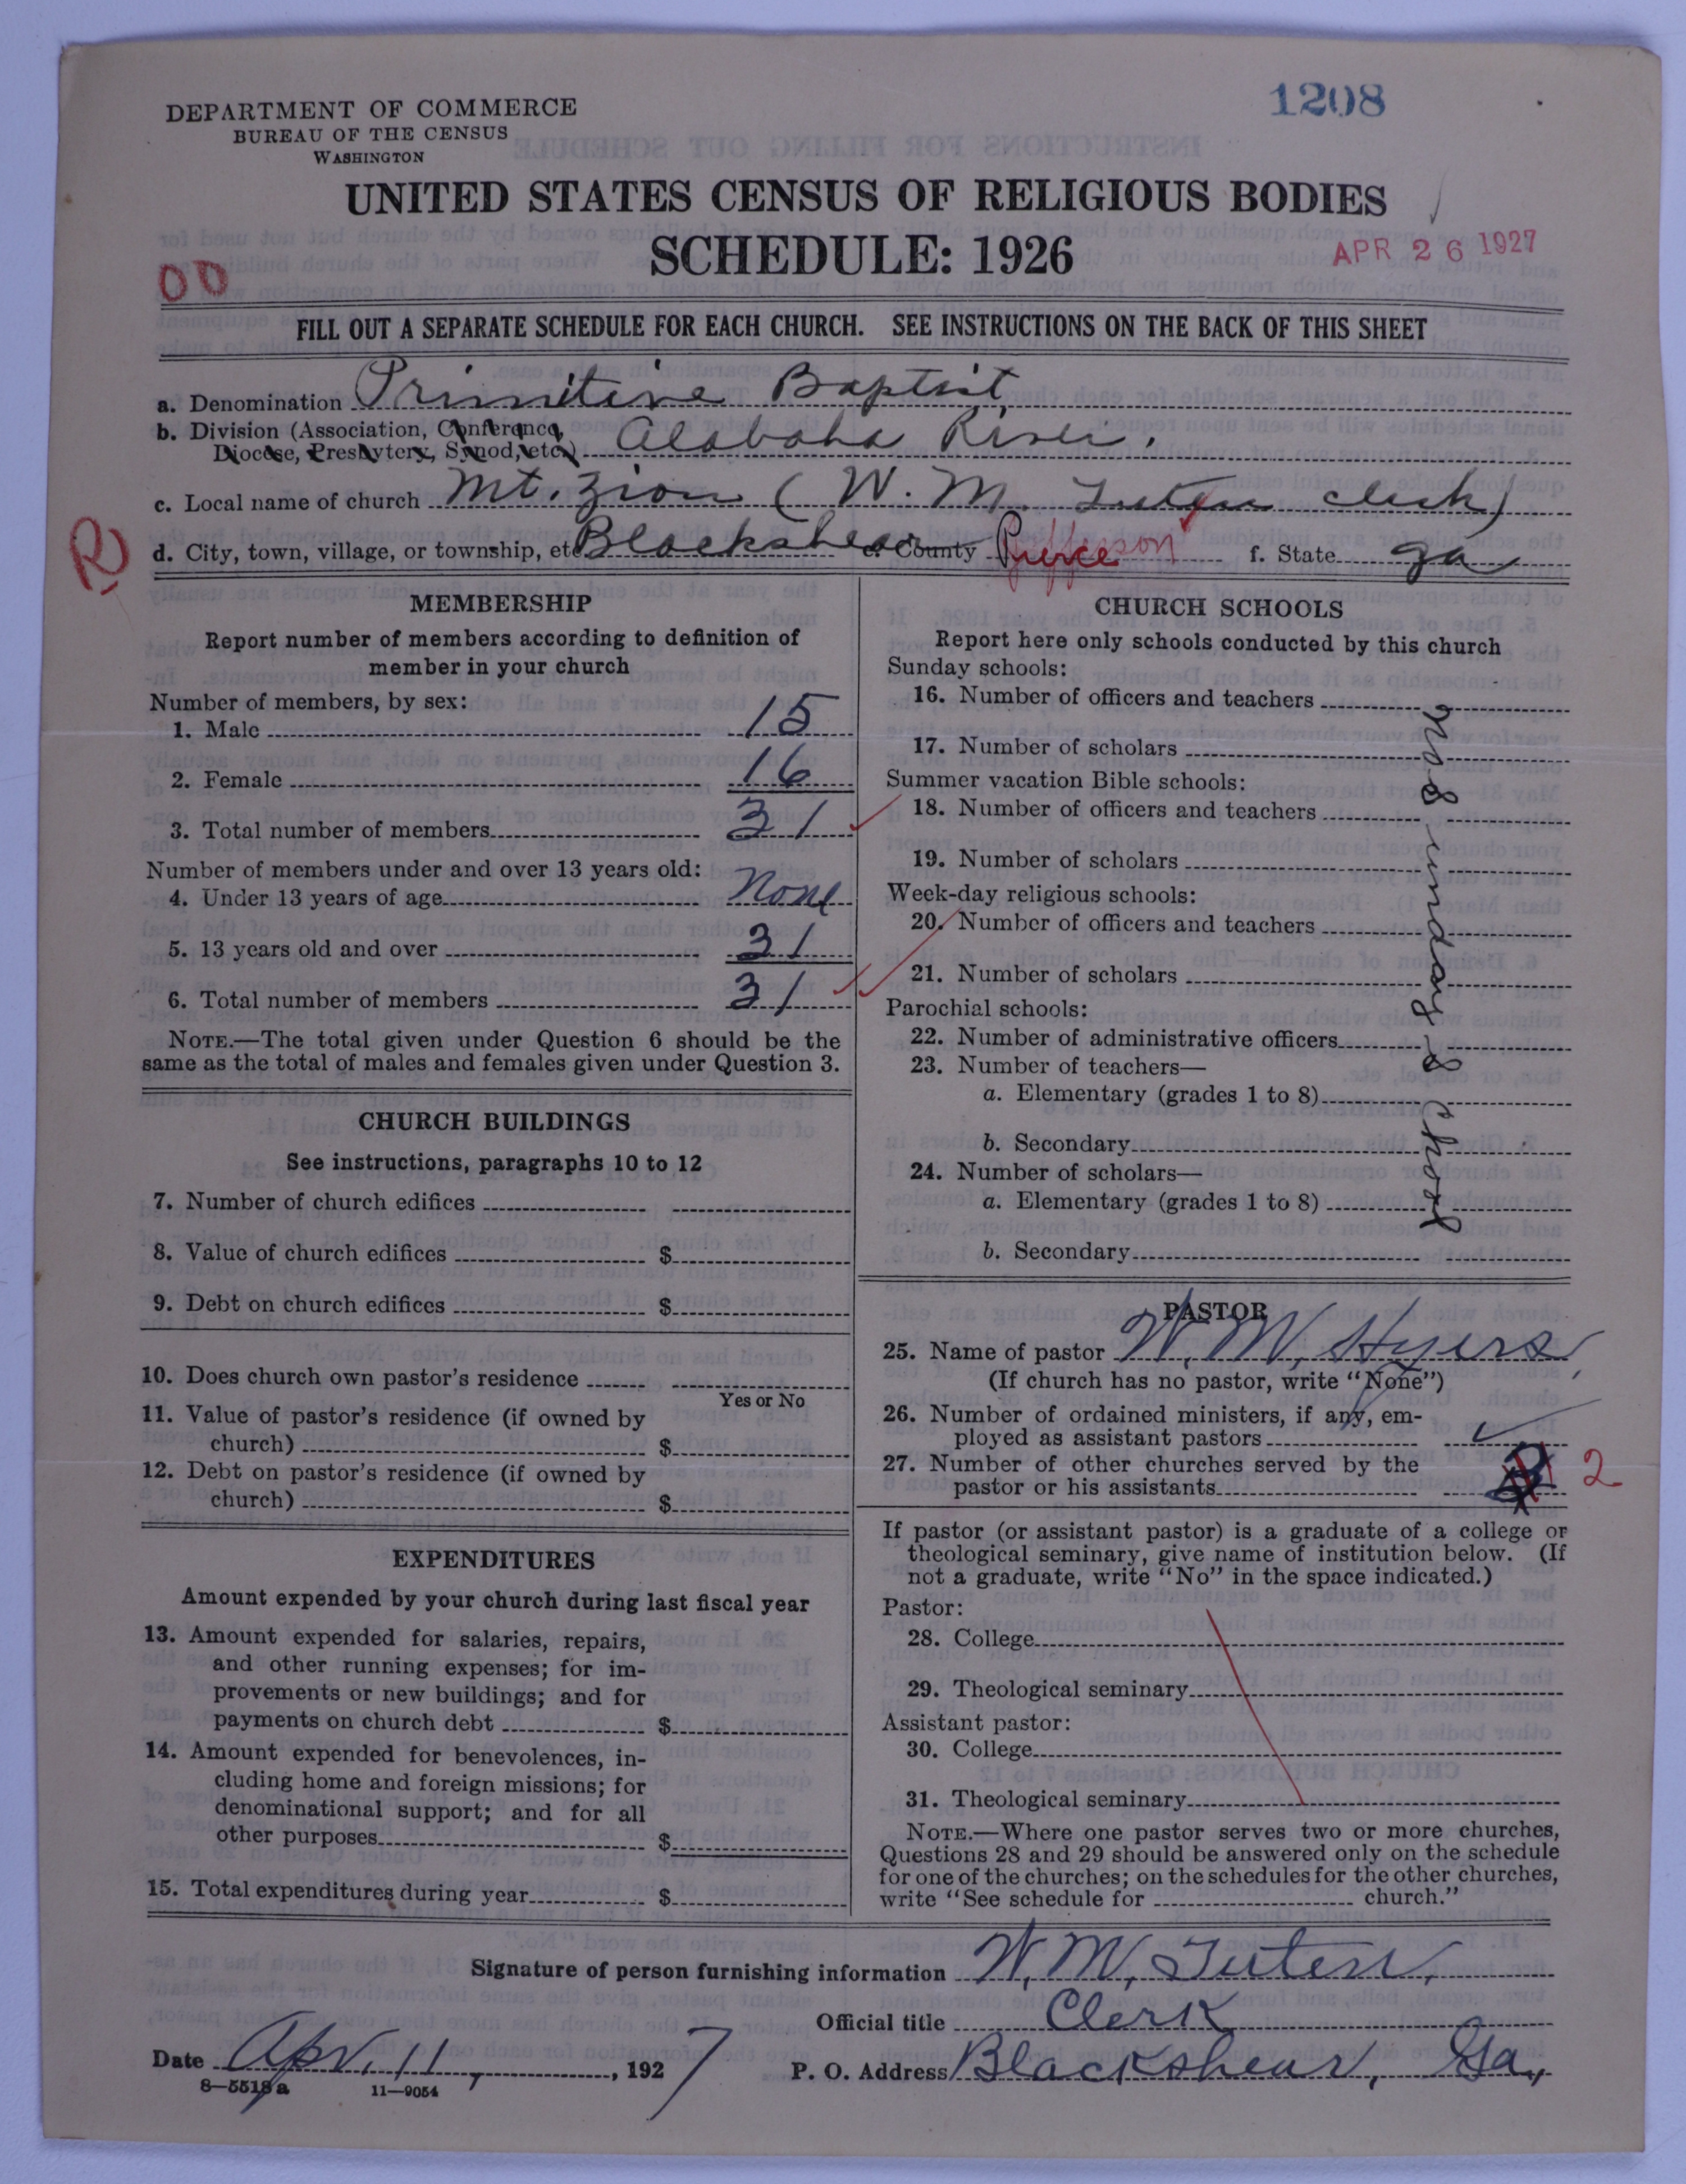 1208
DEPARTMENT OF COMMERCE
BUREAU OF THE CENSUS
WASHINGTON
UNITED STATES CENSUS OF RELIGIOUS BODIES
SCHEDULE: 1926
APR 26 1927
OD
FILL OUT A SEPARATE SCHEDULE FOR EACH CHURCH. SEE INSTRUCTIONS ON THE BACK OF THIS SHEET
a. Denomination Primitive Baptist
b. Division (Association, Conference, Diocese, Presbytery, Synod, etc.) Alabaha River.
c. Local name of church Mt. Zion (W. M. Tuten clerk)
R
d. City, town, village, or township, etc Blackshear e. County Pierce f. State Ga
MEMBERSHIP
Report number of members according to definition of
member in your church
Number of members, by sex:
1. Male 15
2. Female 16
3. Total number of members 31
Number of members under and over 13 years old:
4. Under 13 years of age None
5. 13 years old and over 31
6. Total number of members 31
NOTE.—The total given under Question 6 should be the
same as the total of males and females given under Question 3.
CHURCH BUILDINGS
See instructions, paragraphs 10 to 12
7. Number of church edifices
8. Value of church edifices $
9. Debt on church edifices $
10. Does church own pastor's residence
Yes or No
11. Value of pastor's residence (if owned by
church) $
12. Debt on pastor's residence (if owned by
church) $
EXPENDITURES
Amount expended by your church during last fiscal year
13. Amount expended for salaries, repairs,
and other running expenses; for im-
provements or new buildings; and for
payments on church debt $
14. Amount expended for benevolences, in-
cluding home and foreign missions; for
denominational support; and for all
other purposes $
15. Total expenditures during year $
CHURCH SCHOOLS
Report here only schools conducted by this church
Sunday schools:
16. Number of officers and teachers
17. Number of scholars
Summer vacation Bible schools:
18. Number of officers and teachers
19. Number of scholars
Week-day religious schools:
20. Number of officers and teachers
21. Number of scholars
Parochial schools:
22. Number of administrative officers
23. Number of teachers—
a. Elementary (grades 1 to 8)
b. Secondary
24. Number of scholars—
a. Elementary (grades 1 to 8)
b. Secondary
no Sunday School
PASTOR
25. Name of pastor W. M. Hyers,
(If church has no pastor, write "None")
26. Number of ordained ministers, if any, em-
ployed as assistant pastors
27. Number of other churches served by the
pastor or his assistants 2
If pastor (or assistant pastor) is a graduate of a college or
theological seminary, give name of institution below. (If
not a graduate, write "No" in the space indicated.)
Pastor:
28. College
29. Theological seminary
Assistant pastor:
30. College
31. Theological seminary
NOTE.—Where one pastor serves two or more churches,
Questions 28 and 29 should be answered only on the schedule
for one of the churches; on the schedules for the other churches,
write "See schedule for church."
Signature of person furnishing information W. M. Tuten,
Official title Clerk
Date Apr. 11, 1927 P. O. Address Blackshear, Ga,
8—5518 a 11—9054